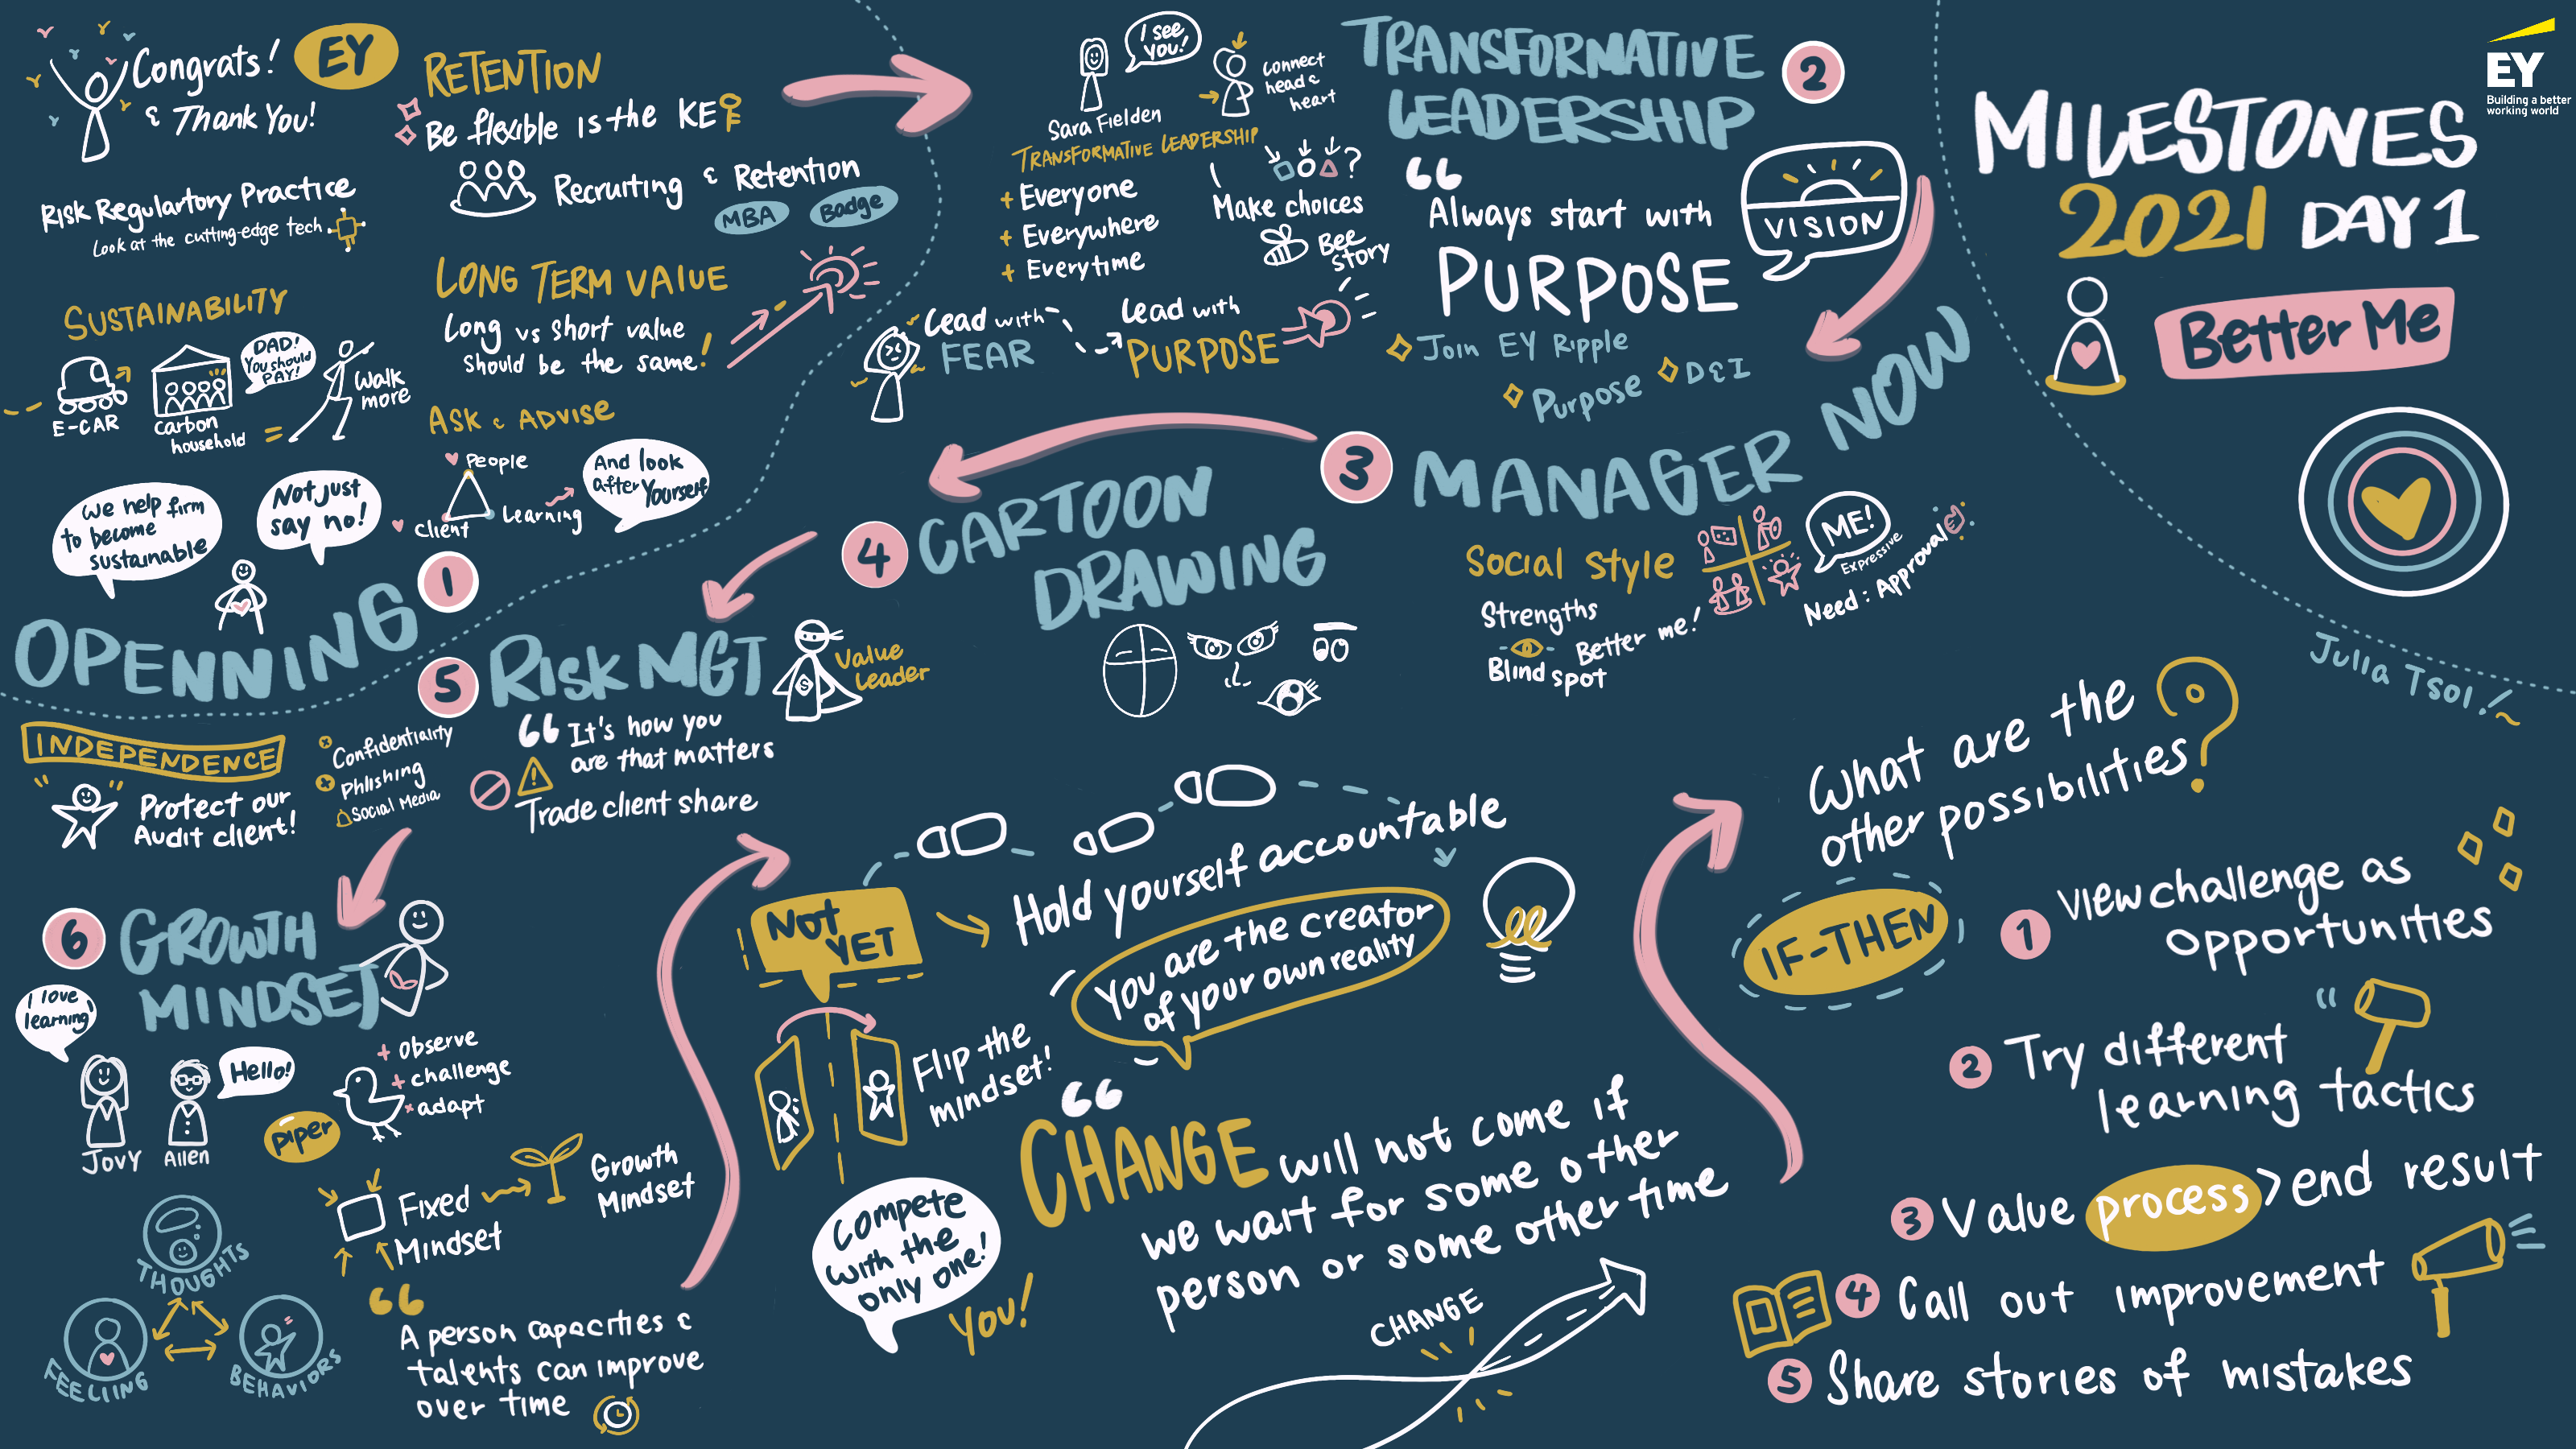 EY
Building a better
working world
MILESTONES
2021 DAY 1
Better Me
Julia Tsoi!
Congrats!
& Thank You!
EY
Risk Regulartory Practice
Look at the cutting-edge tech
SUSTAINABILITY
E-CAR
carbon
household
DAD!
You should
PAY!
=
walk
more
we help firm
to become
sustainable
Not just
say no!
RETENTION
Be flexible is the KEY
Recruiting & Retention
MBA
Badge
LONG TERM VALUE
Long vs short value
should be the same!
ASK & ADVISE
People
client
Learning
And look
after Yourself
OPENNING
1
Sara Fielden
I see
you!
connect
head &
heart
TRANSFORMATIVE LEADERSHIP
+ Everyone
+ Everywhere
+ Everytime
?
Make choices
Bee
story
Lead with
FEAR
Lead with
PURPOSE
TRANSFORMATIVE
LEADERSHIP
2
“ Always start with
PURPOSE
VISION
Join EY Ripple
Purpose
D&I
3
MANAGER NOW
Social Style
Strengths
Blind spot
Better me!
ME!
Expressive
Need: Approval
4
CARTOON
DRAWING
5
RISK MGT
Value
Leader
“ It's how you
are that matters
Trade client share
INDEPENDENCE
Protect our
Audit client!
Confidentiality
Phlishing
Social Media
6
GROWTH
MINDSET
I love
learning
Jovy
Hello!
Allen
piper
+ observe
+ challenge
+ adapt
Fixed
Mindset
Growth
Mindset
THOUGHTS
FEELIING
BEHAVIORS
“
A person capacities &
talents can improve
over time
NOT
YET
Hold yourself accountable
You are the creator
of your own reality
Flip the
mindset!
“
CHANGE will not come if
we wait for some other
person or some other time
Compete
with the
only one!
YOU!
CHANGE
What are the
other possibilities?
IF-THEN
1 View challenge as
opportunities
2 Try different
learning tactics
3 Value process > end result
4 Call out improvement
5 Share stories of mistakes